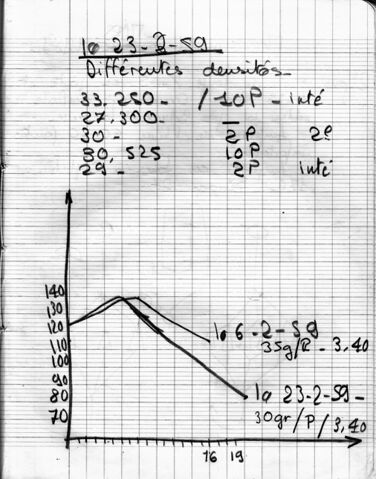 le 23-2-59
Différentes densités
33.250 - /10P - inté
27.300 -
30 - 2P 2e
30,525 10P
29 - 2P inté
140
130
120
110
100
90
80
70
le 6-2-59
35g/R - 3,40
le 23-2-59 -
30gr/P/3,40
16 19